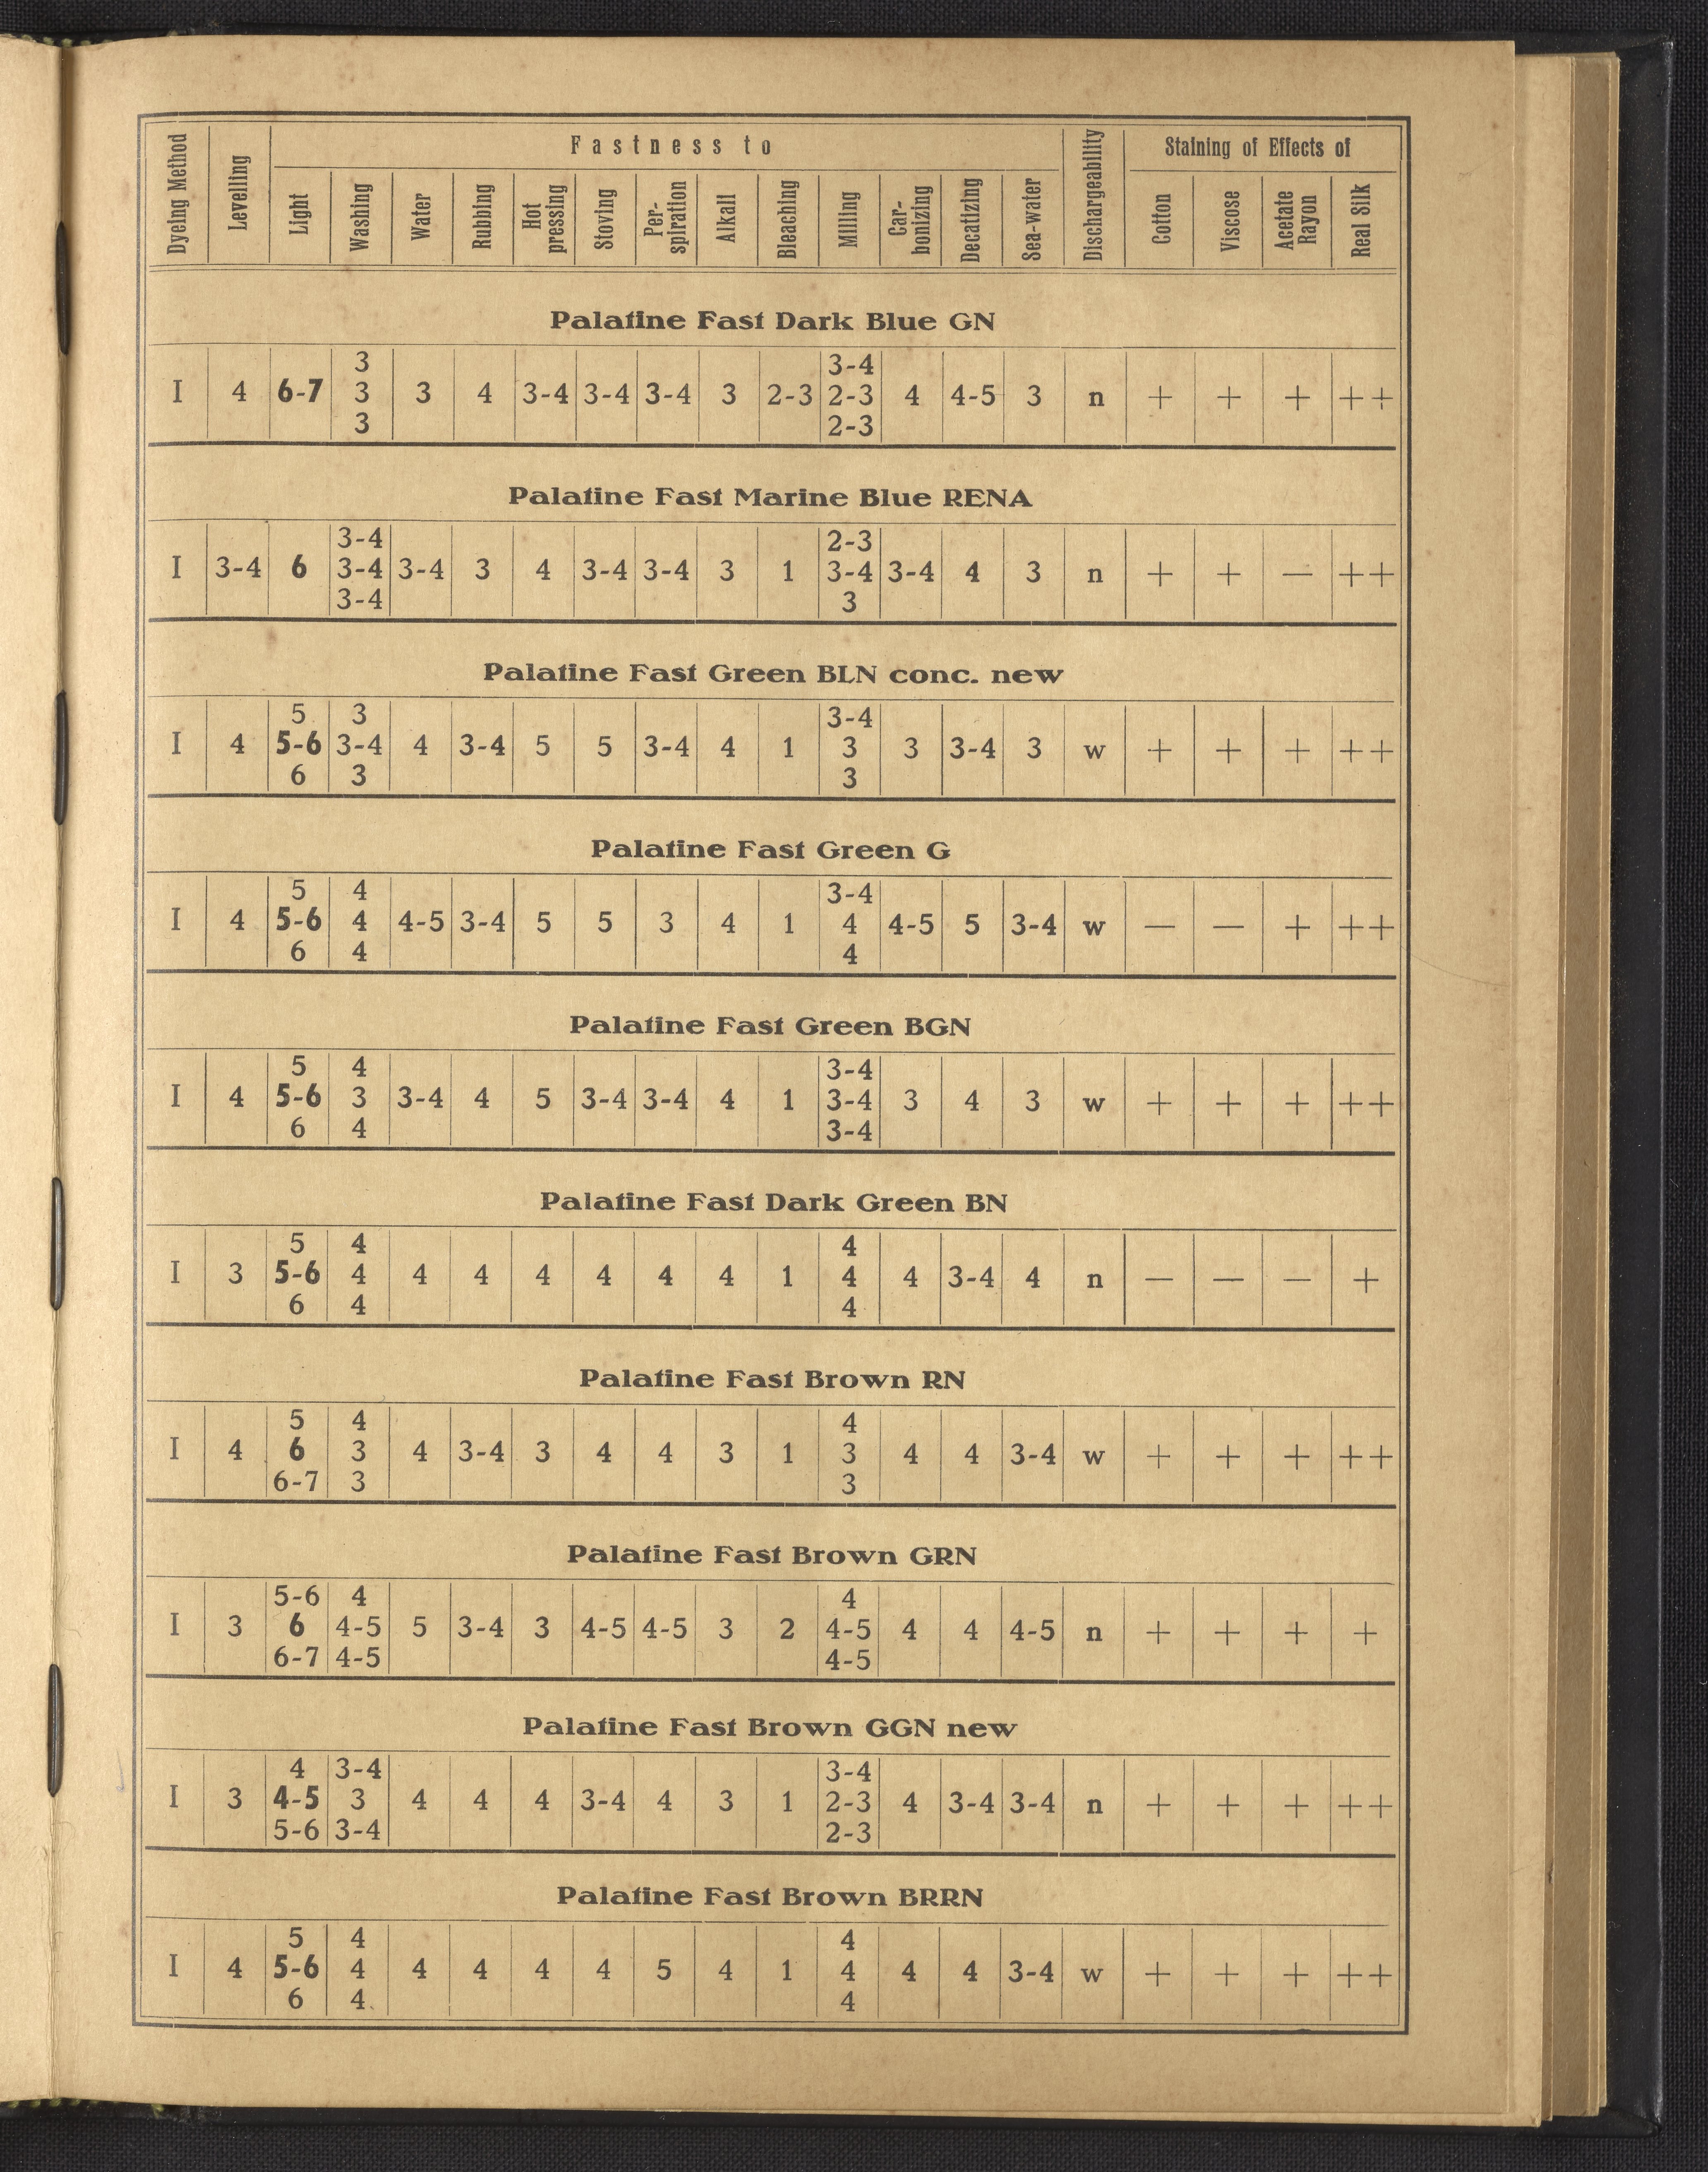 Fastness to
Staining of Effects of
Dyeing Method
Levelling
Light
Washing
Water
Rubbing
Hot
pressing
Stoving
Per-
spiration
Alkali
Bleaching
Milling
Car-
bonizing
Decatizing
Sea-water
Dischargeability
Cotton
Viscose
Acetate
Rayon
Real Silk
Palatine Fast Dark Blue GN
3 3-4
I 4 6-7 3 3 4 3-4 3-4 3-4 3 2-3 2-3 4 4-5 3 n + + + ++
3 2-3
Palatine Fast Marine Blue RENA
3-4 2-3
I 3-4 6 3-4 3-4 3 4 3-4 3-4 3 1 3-4 3-4 4 3 n + + — ++
3-4 3
Palatine Fast Green BLN conc. new
5 3 3-4
I 4 5-6 3-4 4 3-4 5 5 3-4 4 1 3 3 3-4 3 w + + + ++
6 3 3
Palatine Fast Green G
5 4 3-4
I 4 5-6 4 4-5 3-4 5 5 3 4 1 4 4-5 5 3-4 w — — + ++
6 4 4
Palatine Fast Green BGN
5 4 3-4
I 4 5-6 3 3-4 4 5 3-4 3-4 4 1 3-4 3 4 3 w + + + ++
6 4 3-4
Palatine Fast Dark Green BN
5 4 4
I 3 5-6 4 4 4 4 4 4 4 1 4 4 3-4 4 n — — — +
6 4 4
Palatine Fast Brown RN
5 4 4
I 4 6 3 4 3-4 3 4 4 3 1 3 4 4 3-4 w + + + ++
6-7 3 3
Palatine Fast Brown GRN
5-6 4 4
I 3 6 4-5 5 3-4 3 4-5 4-5 3 2 4-5 4 4 4-5 n + + + +
6-7 4-5 4-5
Palatine Fast Brown GGN new
4 3-4 3-4
I 3 4-5 3 4 4 4 3-4 4 3 1 2-3 4 3-4 3-4 n + + + ++
5-6 3-4 2-3
Palatine Fast Brown BRRN
5 4 4
I 4 5-6 4 4 4 4 4 5 4 1 4 4 4 3-4 w + + + ++
6 4 4